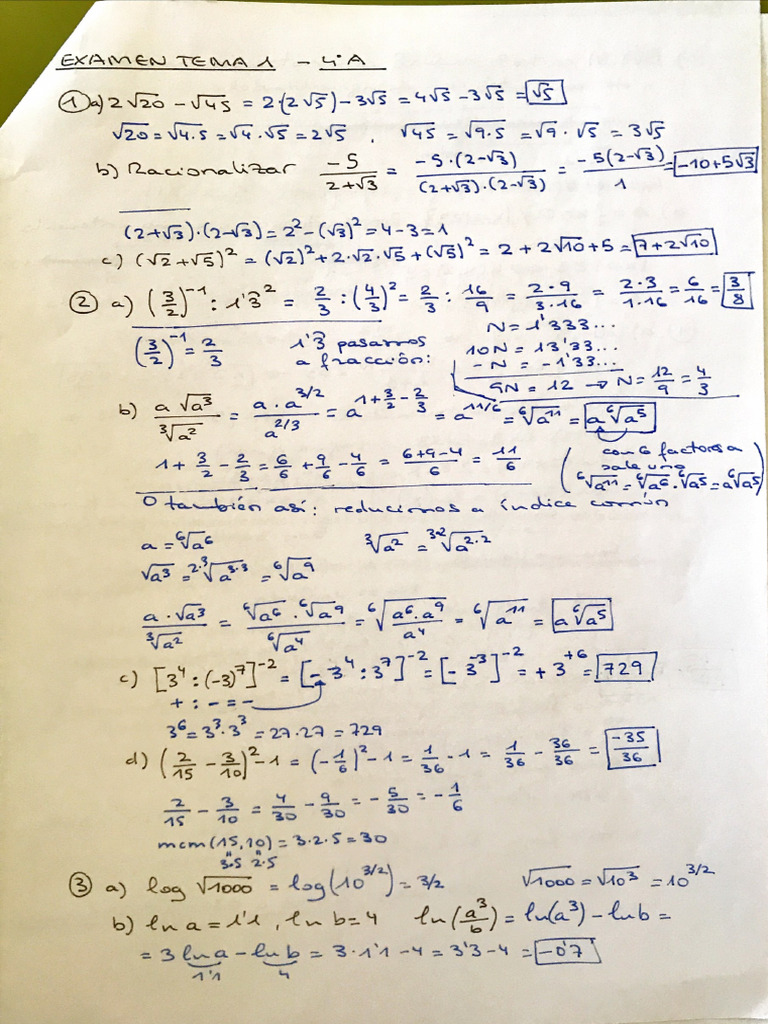 EXAMEN TEMA 1 - 4ºA
① a) 2√20 - √45 = 2·(2√5) - 3√5 = 4√5 - 3√5 = √5
√20 = √4·5 = √4·√5 = 2√5 , √45 = √9·5 = √9·√5 = 3√5
b) Racionalizar -5/(2+√3) = -5·(2-√3)/((2+√3)·(2-√3)) = -5(2-√3)/1 = -10+5√3
(2+√3)·(2-√3) = 2² - (√3)² = 4-3 = 1
c) (√2+√5)² = (√2)² + 2·√2·√5 + (√5)² = 2 + 2√10 + 5 = 7+2√10
② a) (3/2)⁻¹ : 1'3̂² = 2/3 : (4/3)² = 2/3 : 16/9 = 2·9/3·16 = 2·3/1·16 = 6/16 = 3/8
(3/2)⁻¹ = 2/3
1'3 pasamos
a fracción:
N = 1'333...
10N = 13'33...
-N = -1'33...
9N = 12 → N = 12/9 = 4/3
b) a√a³/∛a² = a·a^(3/2)/a^(2/3) = a^(1+3/2-2/3) = a^(11/6) = ⁶√a¹¹ = a⁶√a⁵
1 + 3/2 - 2/3 = 6/6 + 9/6 - 4/6 = (6+9-4)/6 = 11/6
(con 6 factores a
sale una
⁶√a¹¹ = ⁶√a⁶·⁶√a⁵ = a⁶√a⁵)
O también así: reducimos a índice común
a = ⁶√a⁶ ∛a² = ³·²√a²·²
√a³ = ²·³√a³·³ = ⁶√a⁹
a·√a³/∛a² = ⁶√a⁶·⁶√a⁹/⁶√a⁴ = ⁶√(a⁶·a⁹/a⁴) = ⁶√a¹¹ = a⁶√a⁵
c) [3⁴ : (-3)⁷]⁻² = [-3⁴ : 3⁷]⁻² = [-3⁻³]⁻² = +3⁺⁶ = 729
+ : - = -
3⁶ = 3³·3³ = 27·27 = 729
d) (2/15 - 3/10)² - 1 = (-1/6)² - 1 = 1/36 - 1 = 1/36 - 36/36 = -35/36
2/15 - 3/10 = 4/30 - 9/30 = -5/30 = -1/6
mcm(15,10) = 3·2·5 = 30
3·5 2·5
③ a) log √1000 = log(10^(3/2)) = 3/2 √1000 = √10³ = 10^(3/2)
b) ln a = 1'1 , ln b = 4 ln(a³/b) = ln(a³) - ln b =
= 3 ln a - ln b = 3·1'1 - 4 = 3'3 - 4 = -0'7
1'1 4